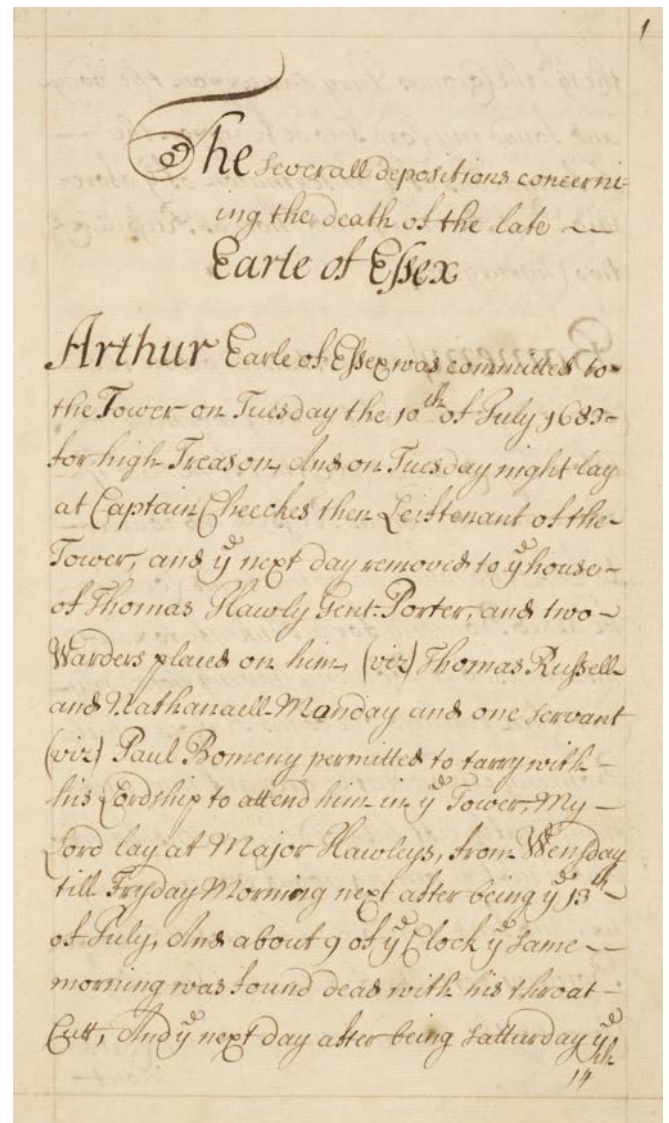 1
The severall depositions concerni=
ing the death of the late
Earle of Essex
Arthur Earle of Essex was committed to
the Tower on Tuesday the 10th of July 1683
for high Treason, And on Tuesday night lay
at Captain Cheeches then Leiftenant of the
Tower, and ye next day removed to ye house
of Thomas Hawly Gent: Porter, and two
Warders placed on him, (viz) Thomas Russell
and Nathanaell Monday and one servant
(viz) Paul Bomeny permitted to tarry with
his Lordship to attend him in ye Tower, My
Lord lay at Major Hawleys, from Wensday
till Fryday Morning next after being ye 13th
of July, And about 9 of ye Clock ye same
morning was found dead with his throat
Cutt, And ye next day after being Satturday ye
14th